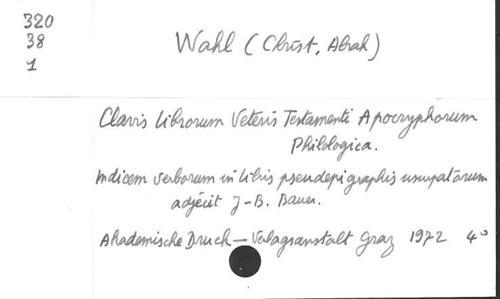 320
38
1
Wahl (Christ, Abrah)
Clavis librorum Veteris Testamenti Apocryphorum
Philologica.
Indicem verborum in libris pseudepigraphis usurpatorum
adjecit J-B. Bauer.
Akademische Druck - Verlagsanstalt Graz 1972 4°